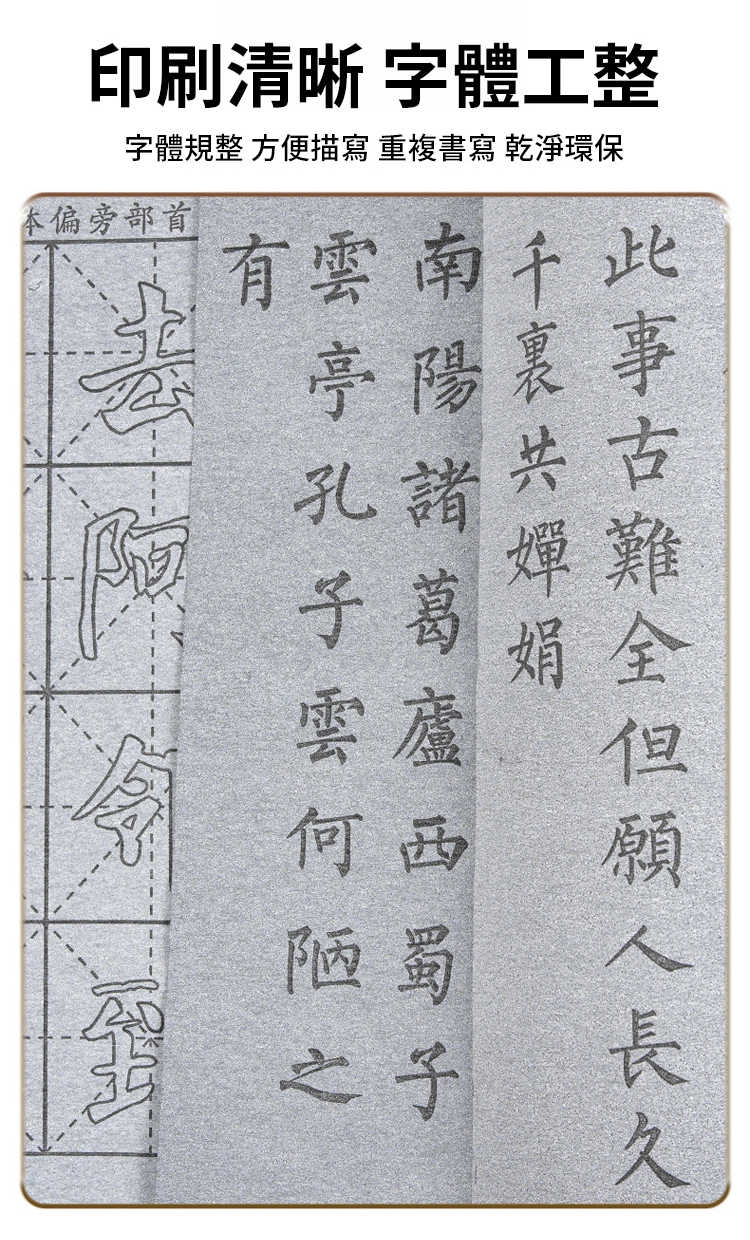 印刷清晰 字體工整
字體規整 方便描寫 重複書寫 乾淨環保
此事古難全但願人長久
千裏共嬋娟
南陽諸葛廬西蜀子
雲亭孔子雲何陋之
有
偏旁部首